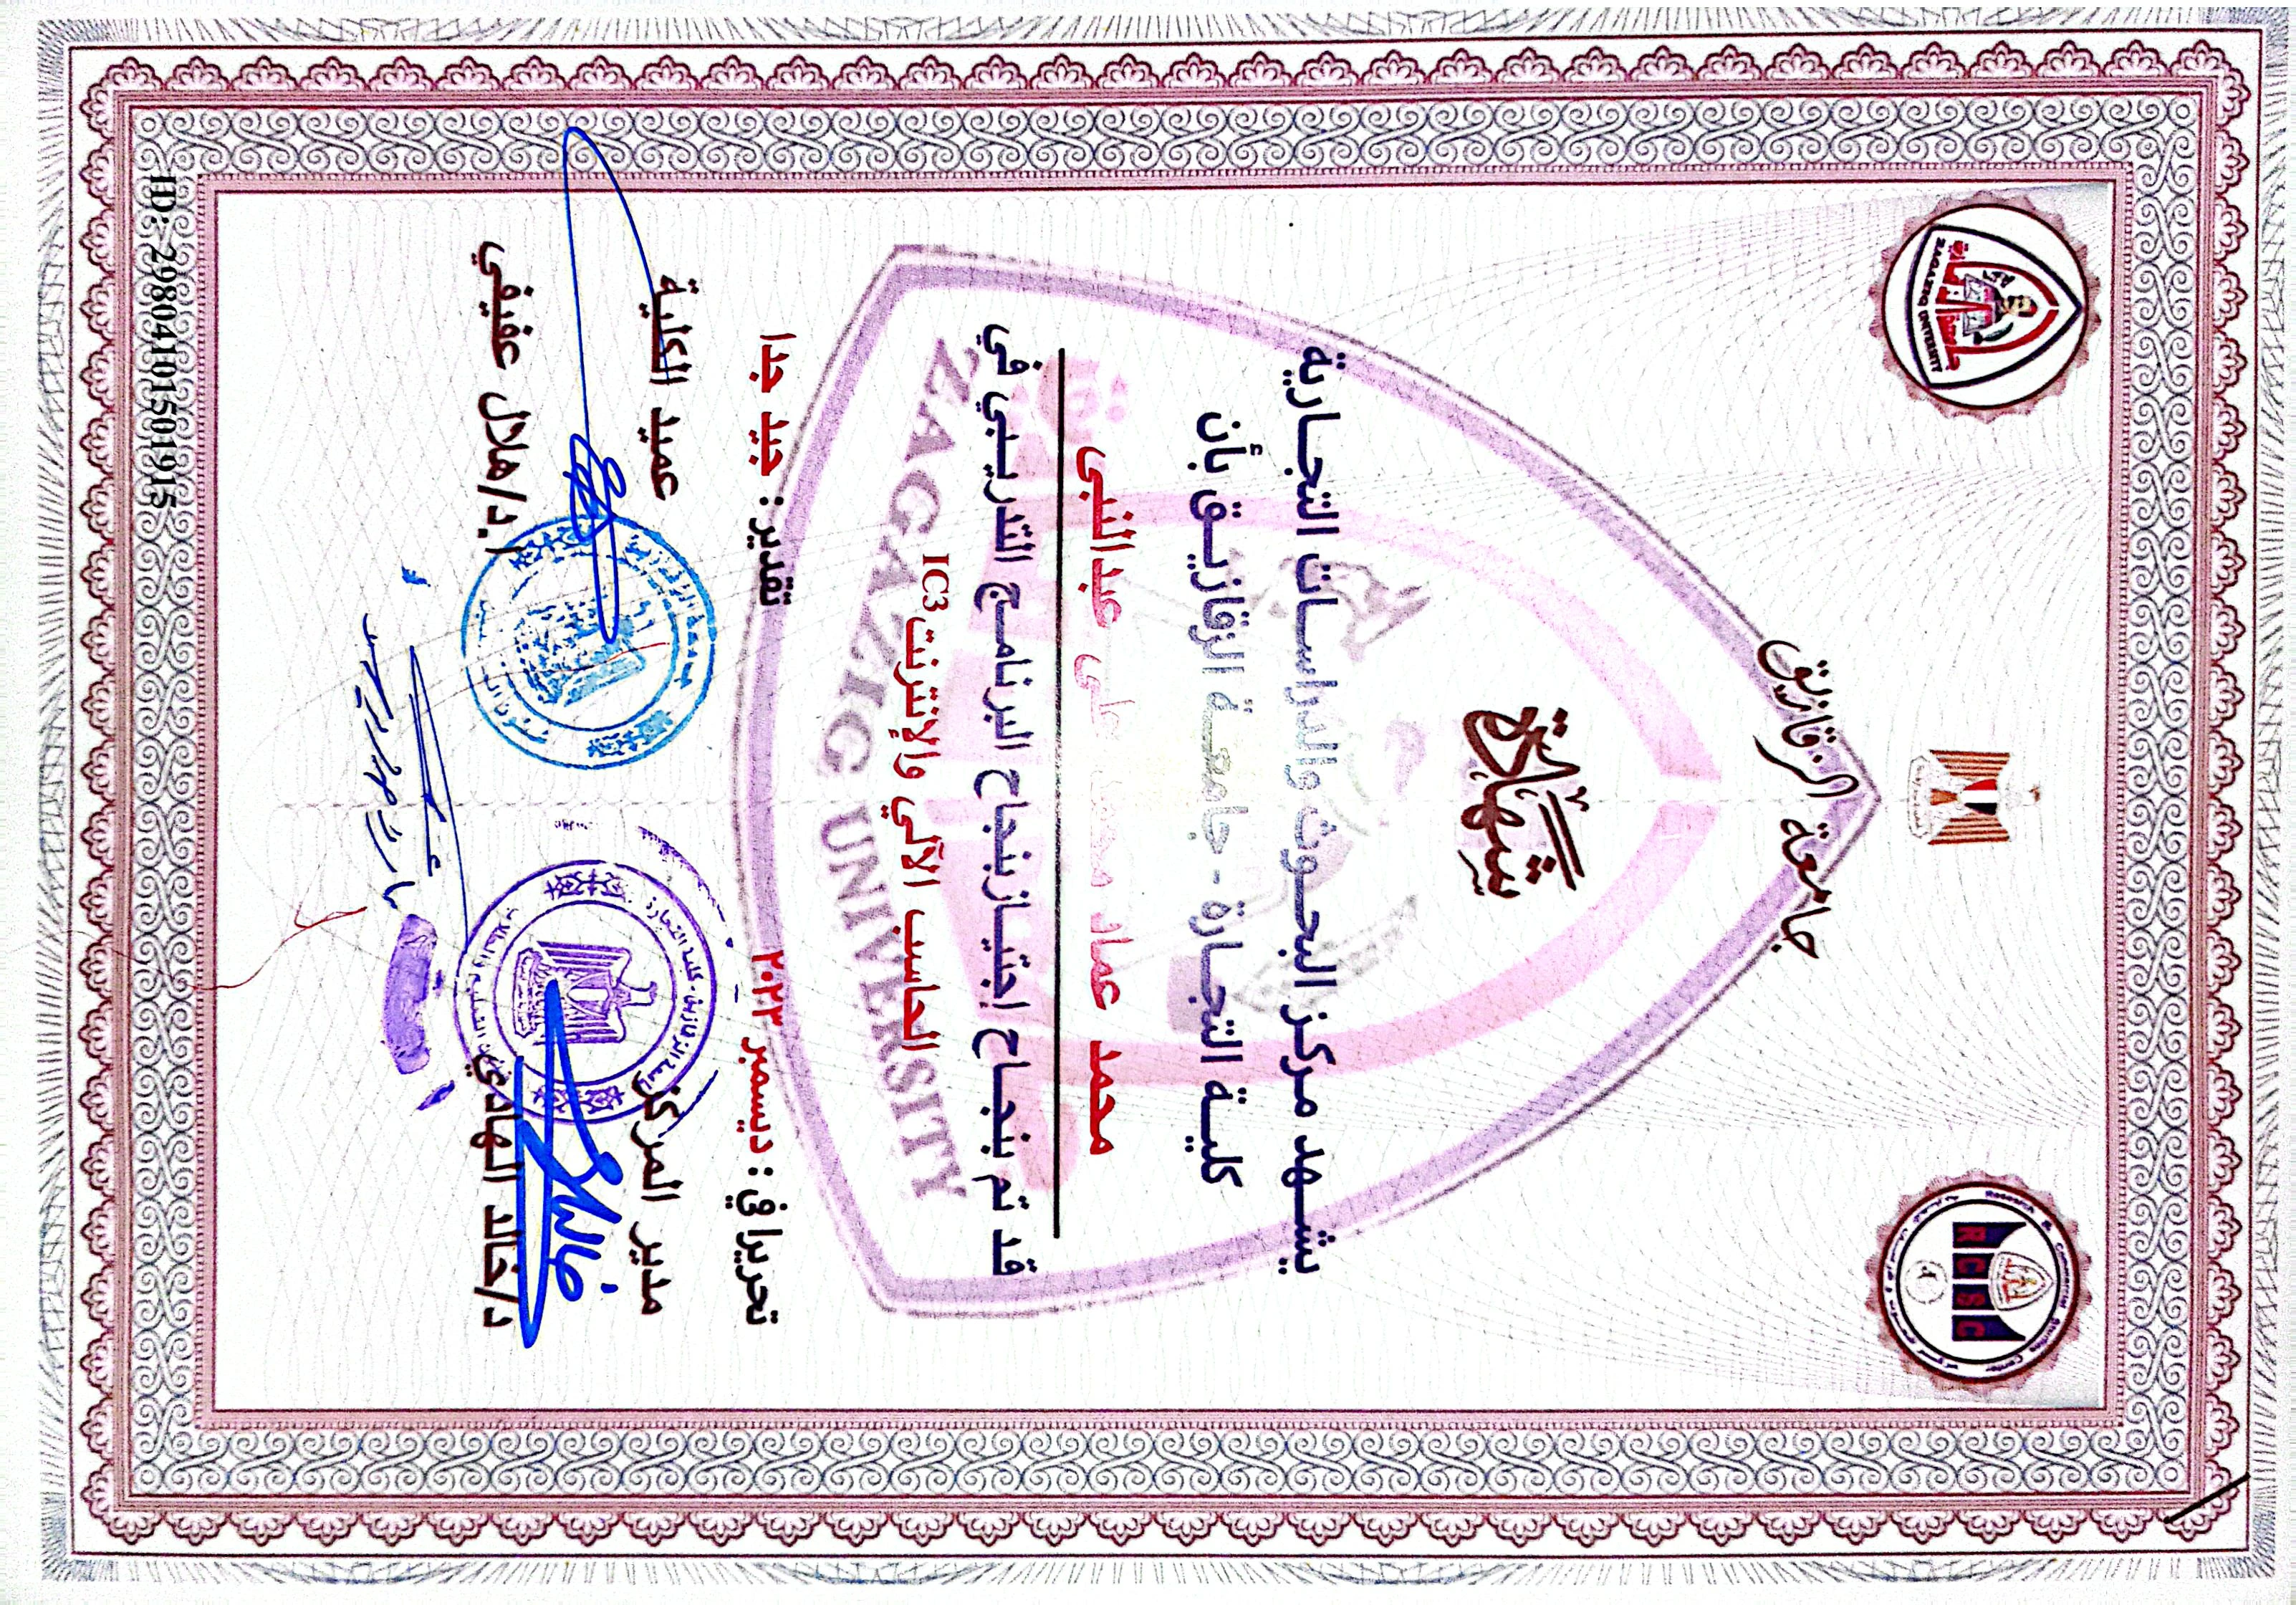 جامعة الزقازيق
ZAGAZIG UNIVERSITY
RCSC
Research & Commercial Studies Center
شهادة
يشهد مركز البحوث والدراسات التجارية
كلية التجارة - جامعة الزقازيق بأن
محمد عماد محمد على عبدالنبى
قد تم بنجاح إجتياز بنجاح البرنامج التدريبي في
الحاسب الآلي والإنترنت IC3
ZAGAZIG UNIVERSITY
تحريراً في : ديسمبر ٢٠٢٢ تقدير : جيد جدا
مدير المركز عميد الكلية
د/خالد الهادي ا.د/هلال عفيفي
ID: 29804101501915